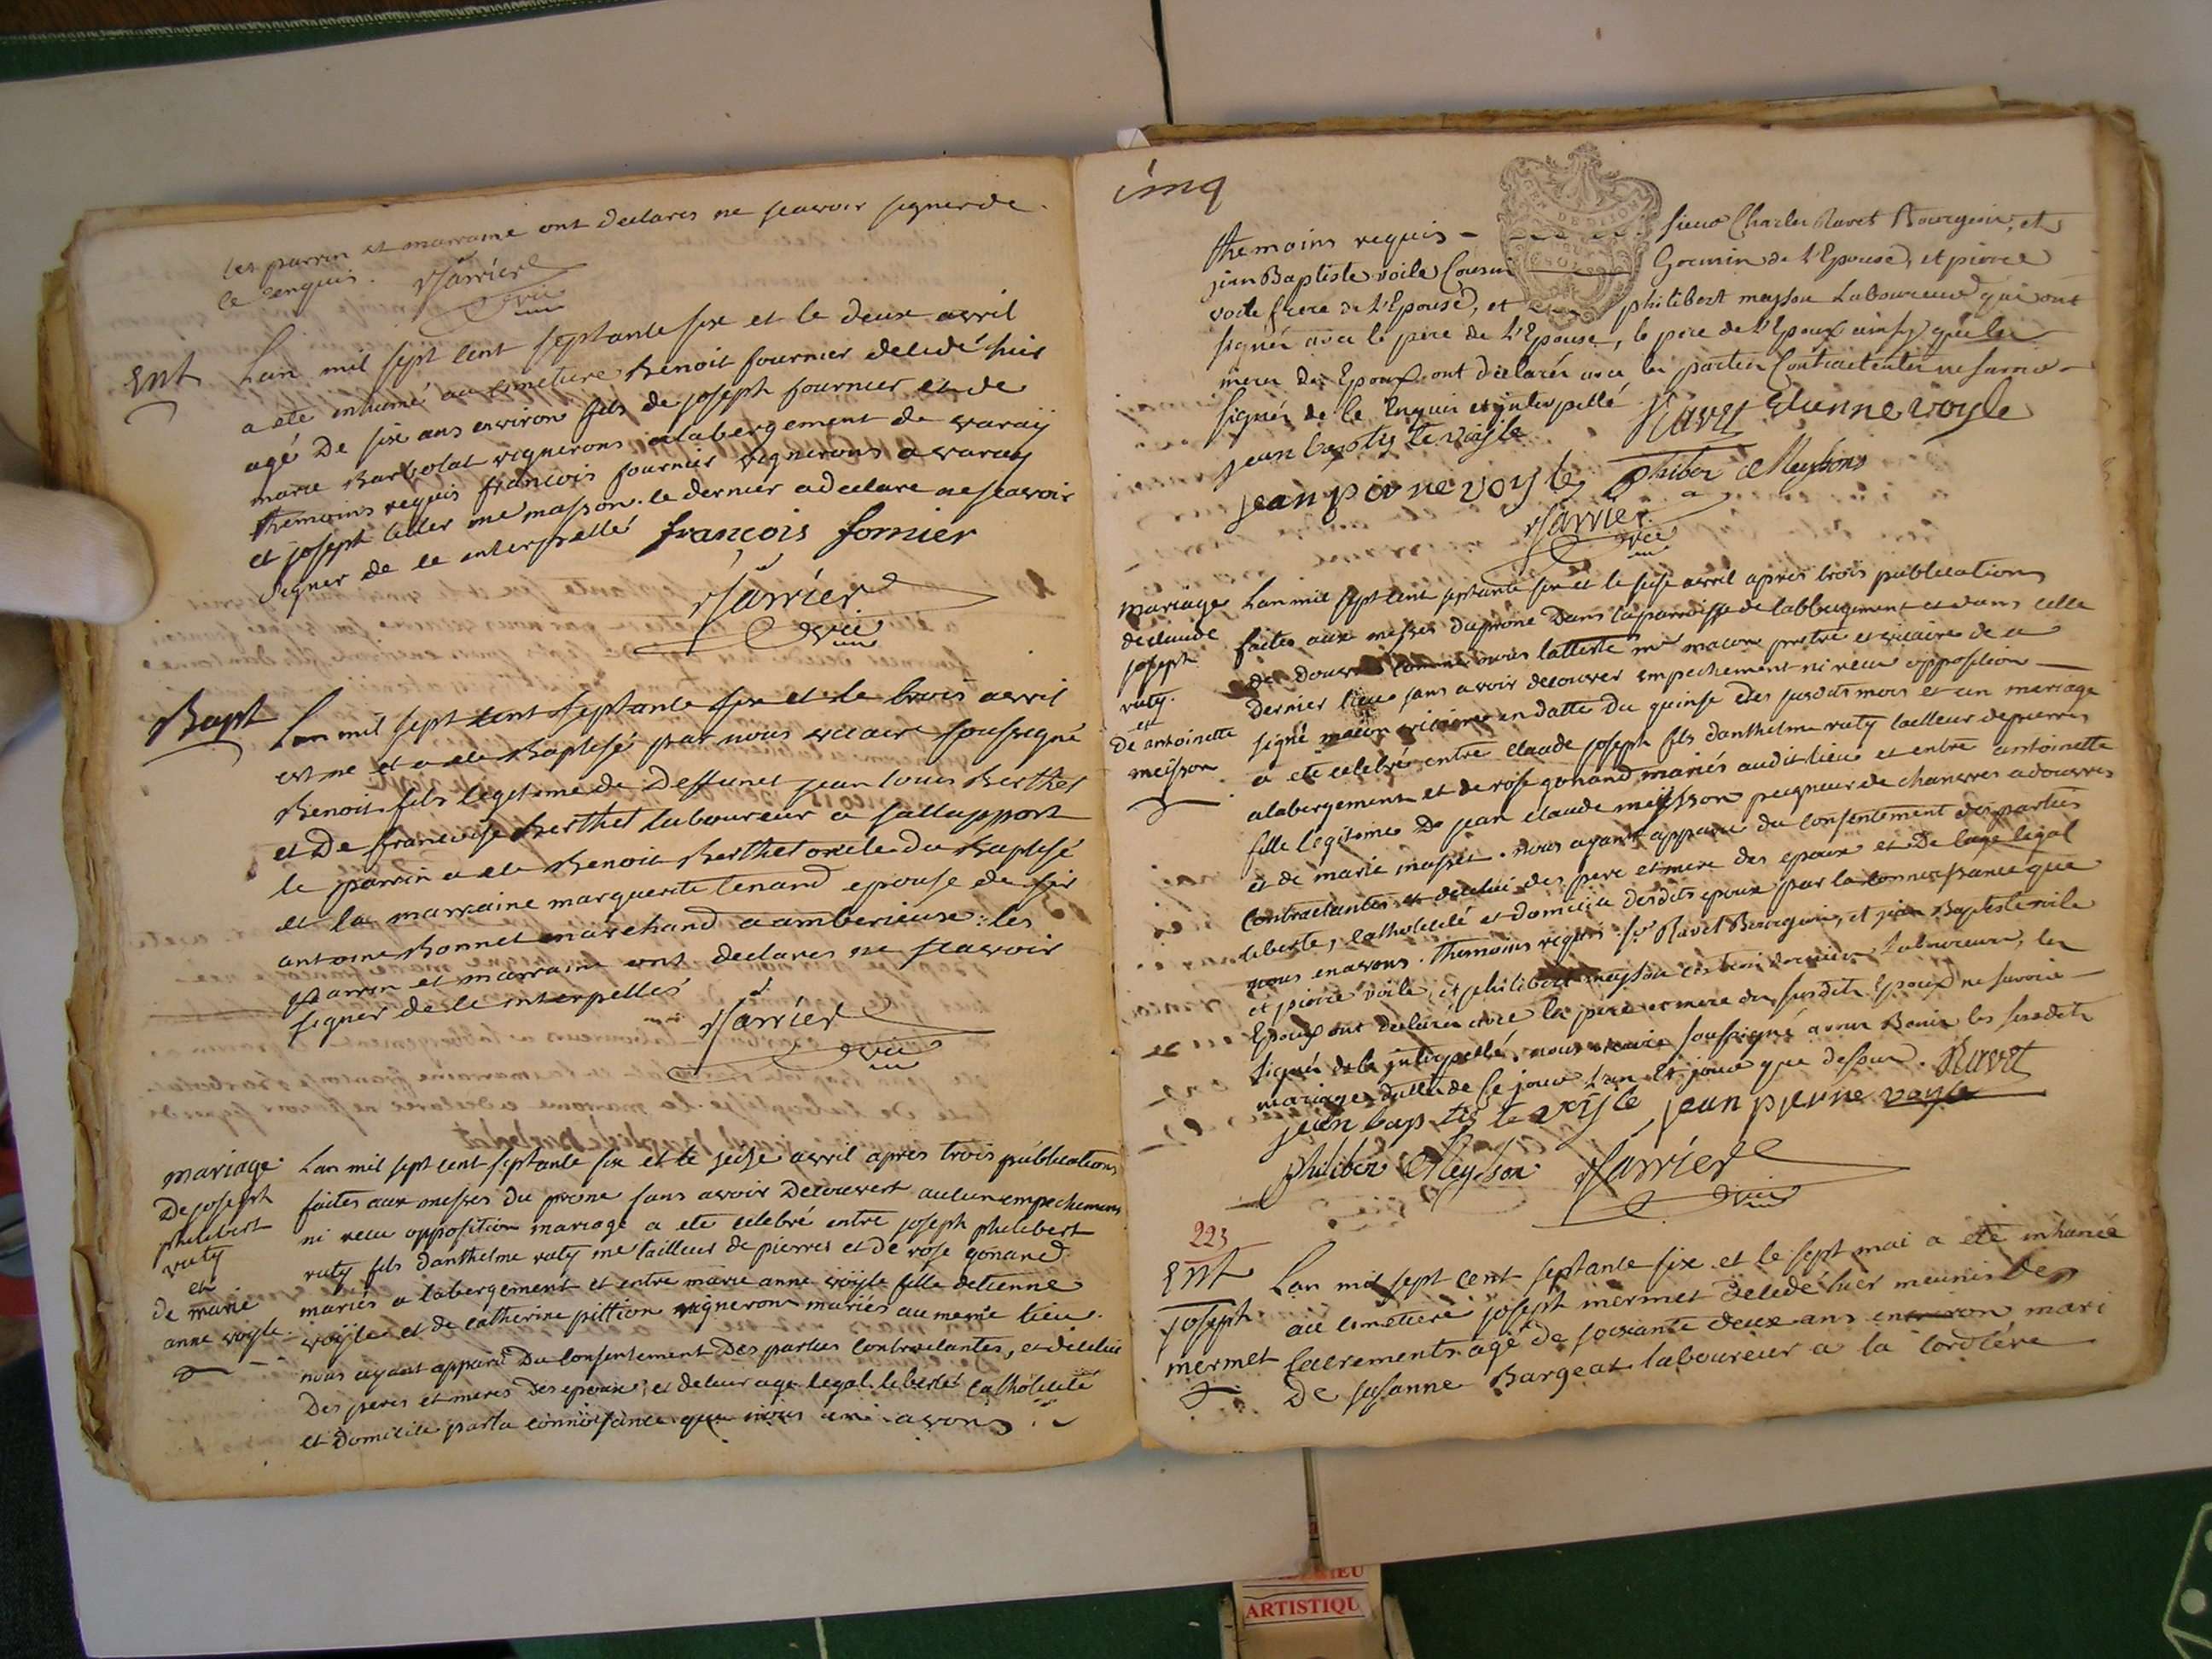 les parrin et marraine ont declares ne scavoir signer de
ce enquis. Marrier
vic
Ent
Lan mil sept cent septante six et le deux avril
a ete inhumé au cimetiere Benoit fournier decedé hier
agé De six ans environ fils de joseph fournier et de
marie Barbolat vignerons a labergement de varaÿ
themoins requis francois fournier vignerons a varay
et joseph me masson. le dernier a declare ne scavoir
Signer de ce interpellé françois fornier
Marrier
vic
Bapt
Lan mil sept cent septante six et le trois avril
est ne et a ete Baptisé par nous vicaire soussigné
Benoit fils legitime de Deffunct jean louis Berthet
et De francoise Berthet laboureur a
le parrin a ete Benoit Berthet oncle du Baptisé
et la marraine marguerite tenand epouse de sir
antoine Bonnet marchand a amberieux: les
parrin et marraine ont declares ne scavoir
signer de ce interpellés
Marrier
vic
mariage
De joseph
philibert
ruty
et
de marie
anne voyle
Lan mil sept cent septante six et le seize avril apres trois publications
faites aux messes du prone sans avoir Decouvert aucun empechement
ni recu opposition mariage a ete celebré entre joseph philibert
ruty fils danthelme ruty me tailleur de pierres et de rose gonand
mariés a labergement et entre marie anne voÿle fille detienne
voÿle et de catherine pittion vignerons mariés au meme lieu.
nous ayant apparu Du consentement Des parties contractantes, et de celui
Des peres et meres des epoux, et de leur age legal liberté catholicité
et Domicile par la connoissance que nous en avons
cinq
themoins requis - sieur Charles Ravet Bourgeois, et
jean Baptiste voile Cousin Germain de l'Epouse, et pierre
voile frere de l'Epouse, et philibert meysson Laboureur qui ont
signés avec le pere de l'Epouse, le pere de l'Epoux ainsy que les
meres des Epoux ont declarés avec les parties Contractantes ne savoir
Signer de ce Enquis et interpellé Ravet Etienne voyle
jean baptiste voyle
jean pierre voyle Philiber Meysson
Marrier
vic
mariage
de claude
joseph
ruty.
et
De antoinette
meÿsson
Lan mil sept cent septante six et le seise avril apres trois publications
faites aux messes du prone Dans la parroisse de labbergement et dans celle
de Douvre comme nous latteste mr macon pretre et vicaire de ce
dernier lieu sans avoir decouver empechement ni recu opposition
signé macon vicaire en datte du quinse des susdits mois et an mariage
a ete celebré entre claude joseph fils danthelme ruty tailleur de pierres
a labergement et de rose gonand mariés audit lieu et entre antoinette
fille legitime De jean claude meÿsson peigneur de chanvres a douvres
et de marie masset. nous ayant apparu du consentement des parties
contractantes et de celui des pere et mere des epoux et De lage legal
liberté, catholicité et domicile desdits epoux par la connoissance que
nous en avons. themoins requis sr Ravet Bourgeois, et jean Baptiste voile
et pierre voile, et philibert meysson laboureur, les
Epoux ont declarés avec les pere et mere des susdits Epoux ne savoir
signer de ce interpellé. nous vicaire soussigné avons Benis les susdits
mariages dattés de ce jour l'an et jour que dessus. Ravet
jean baptiste voyle jean pierre voyle
philiber Meysson Marrier
vic
223
Ent
joseph
mermet
Lan mil sept cent septante six et le sept mai a ete inhumé
au cimetiere joseph mermet decedé hier meunis des
sacrements agé de soixante deux ans environ mari
De susanne Bargeat laboureur a la cordiere
ARTISTIQU